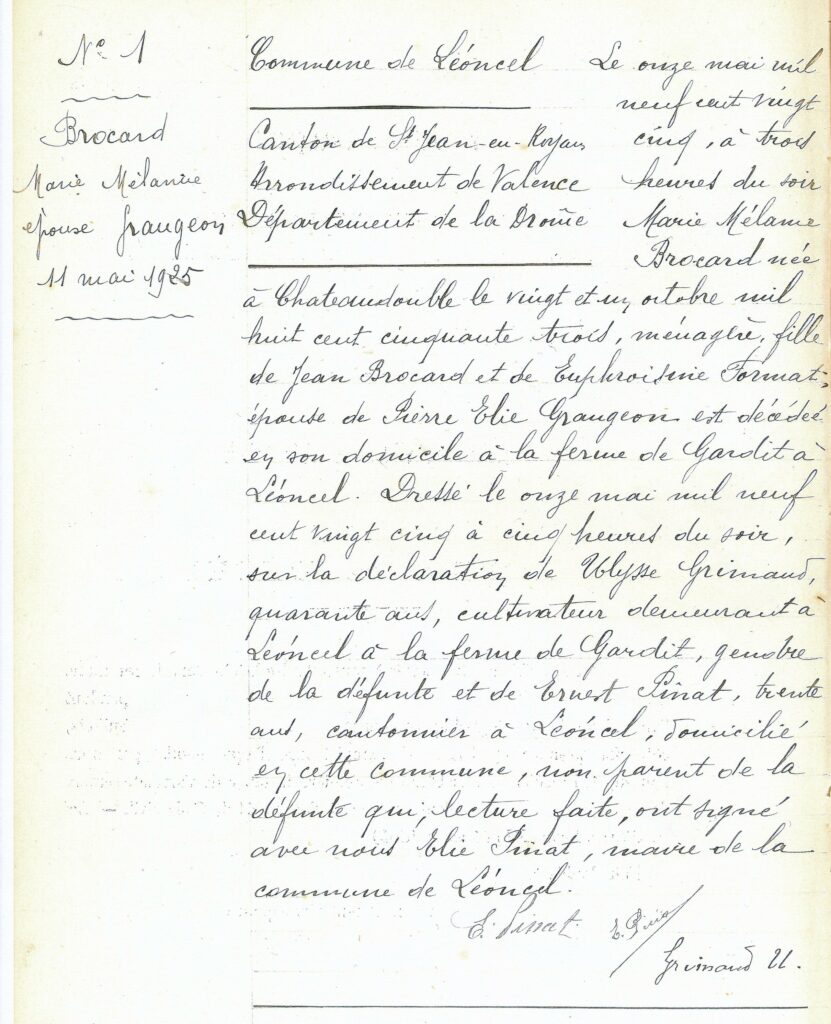 N° 1
Brocard
Marie Mélanie
épouse Grangeon
11 mai 1925
Commune de Léoncel
Canton de St Jean-en-Royans
Arrondissement de Valence
Département de la Drôme
Le onze mai mil
neuf cent vingt
cinq, à trois
heures du soir
Marie Mélanie
Brocard née
à Chateaudouble le vingt et un octobre mil
huit cent cinquante trois, ménagère, fille
de Jean Brocard et de Euphroisine Format,
épouse de Pierre Elie Grangeon est décédée
en son domicile à la ferme de Gardit à
Léoncel. Dressé le onze mai mil neuf
cent vingt cinq à cinq heures du soir,
sur la déclaration de Ulysse Grimaud,
quarante ans, cultivateur demeurant à
Léoncel à la ferme de Gardit, gendre
de la défunte et de Ernest Pinat, trente
ans, cantonnier à Léoncel, domicilié
en cette commune, non parent de la
défunte qui, lecture faite, ont signé
avec nous Elie Pinat, maire de la
commune de Léoncel.
E. Pinat. E. Pinat
Grimaud U.